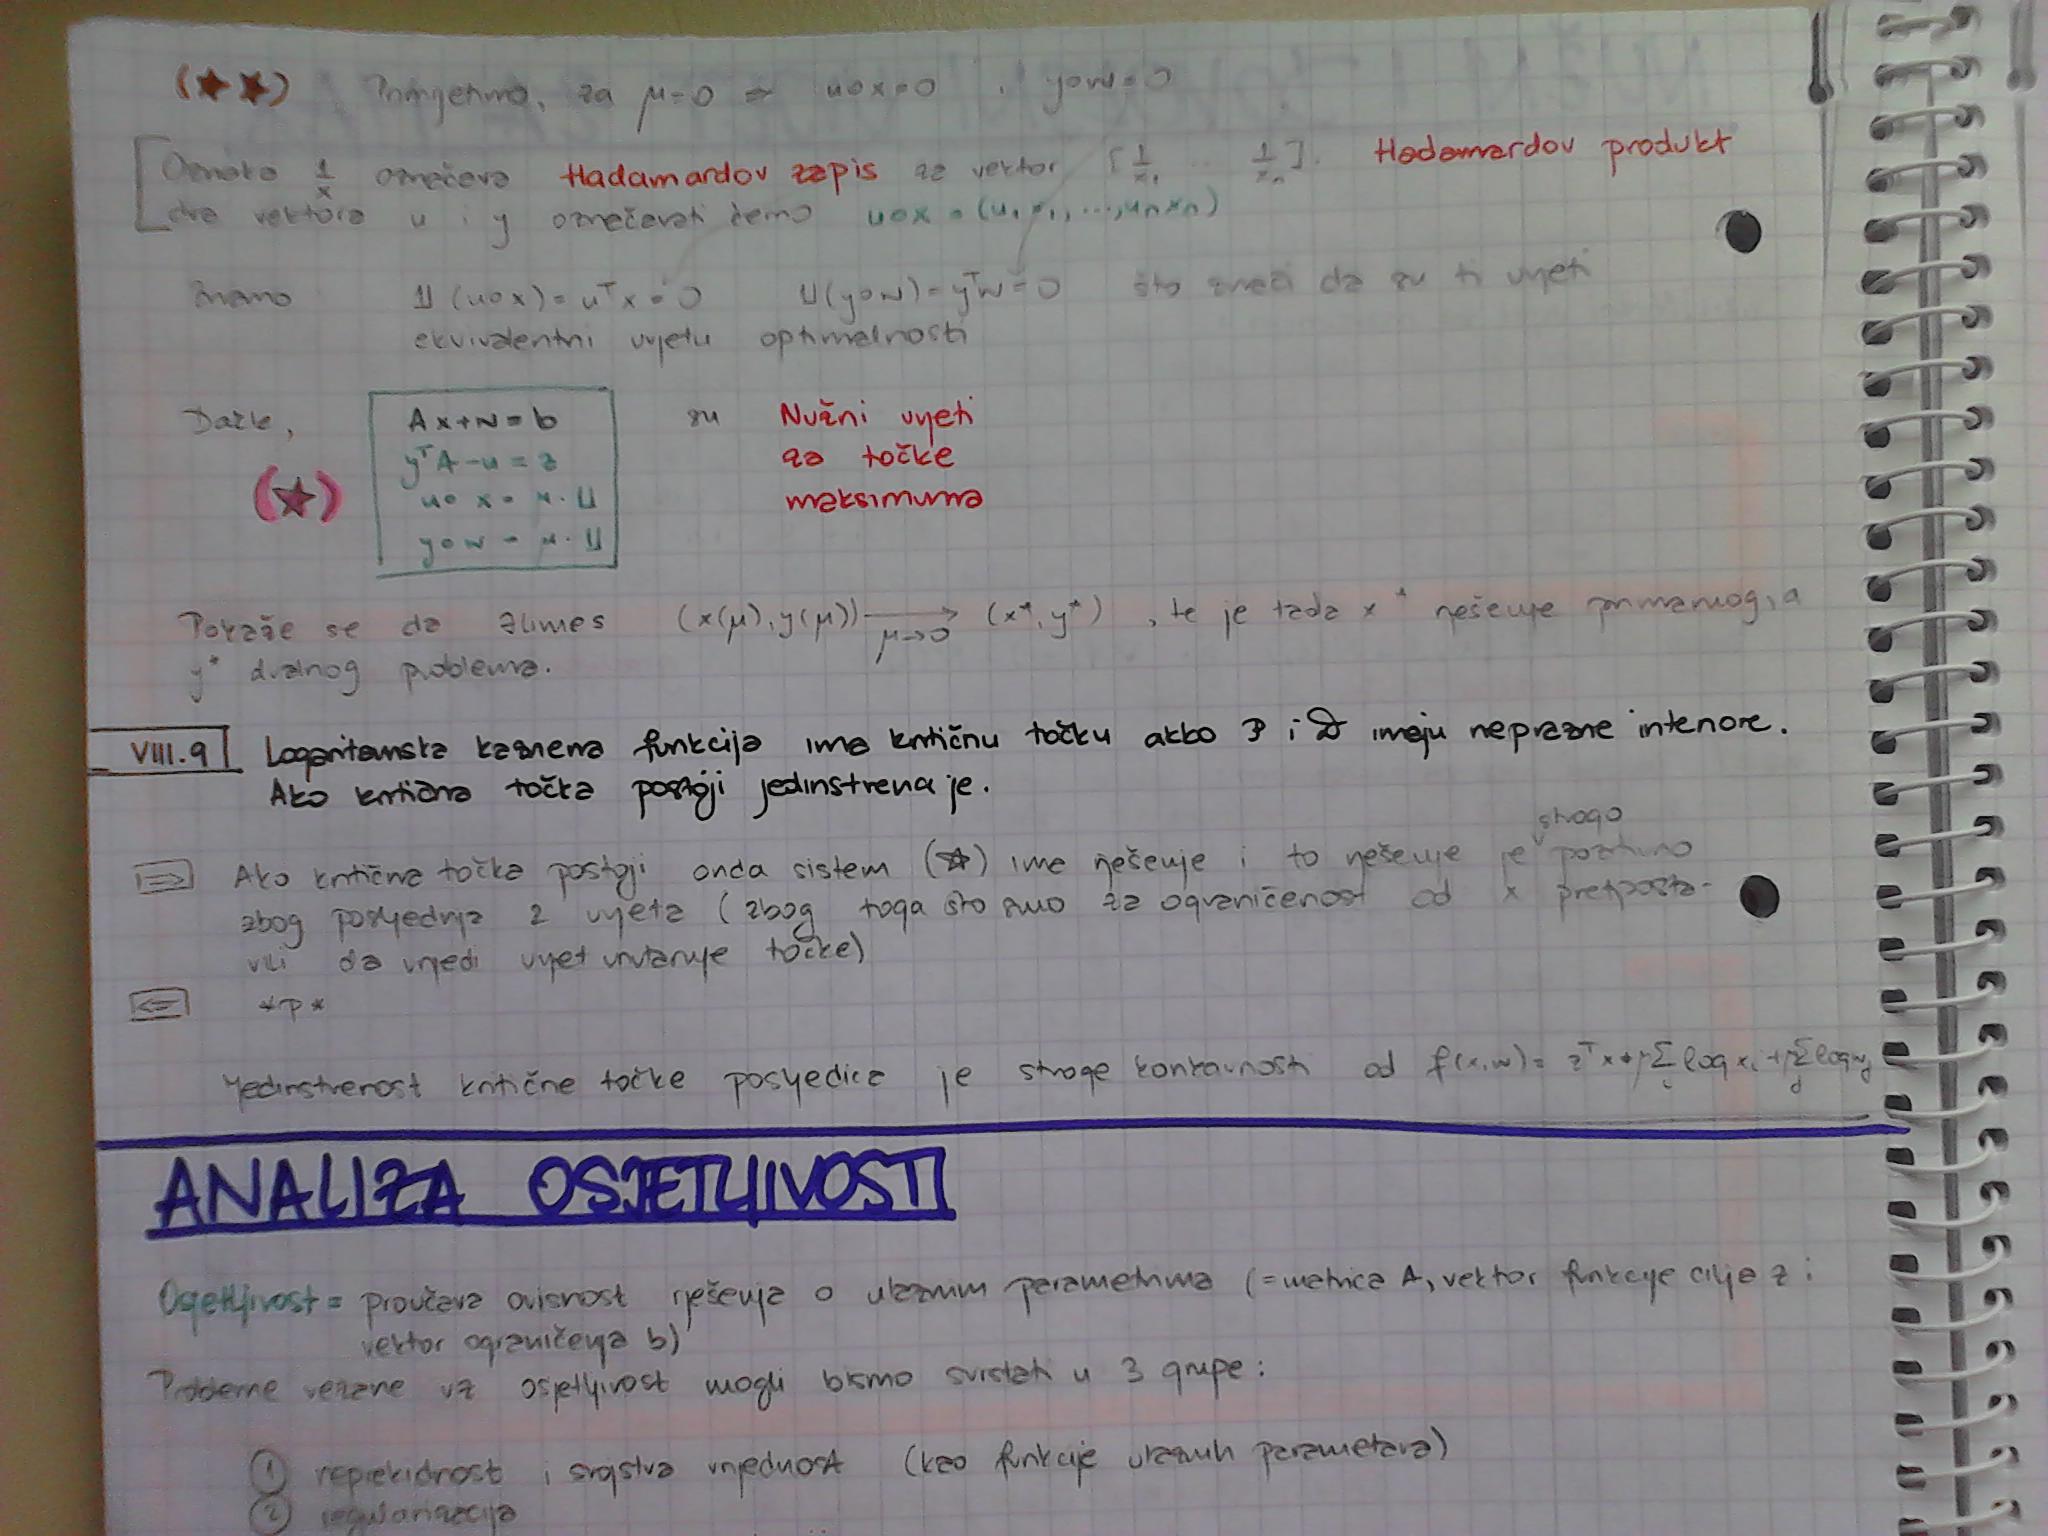 (★★) Primjetimo, za μ=0 ⇒ u∘x=0 , y∘w=0
Oznaka 1/x označava Hadamardov zapis za vektor [1/x₁ ... 1/xₙ]. Hadamardov produkt
dva vektora u i y označavati ćemo u∘x = (u₁x₁, ..., uₙxₙ)
Znamo 𝟙(u∘x) = uᵀx = 0 𝟙(y∘w) = yᵀw = 0 što znači da su ti uvjeti
ekvivalentni uvjetu optimalnosti
Dakle, Ax+w=b su Nužni uvjeti
yᵀA-u=z za točke
(★) u∘x = μ·𝟙 maksimuma
y∘w = μ·𝟙
Pokaže se da limes (x(μ), y(μ)) → μ→0 (x*, y*) , te je tada x* rješenje primarnog, a
y* dualnog problema.
VIII.9 Logaritamska kaznena funkcija ima kritičnu točku akko P i D imaju neprazne interiore.
Ako kritična točka postoji jedinstvena je.
strogo
⇒ Ako kritična točka postoji onda sistem (☆) ima rješenje i to rješenje je pozitivno
zbog posljednja 2 uvjeta (zbog toga što smo za ograničenost od x pretposta-
vili da vrijedi uvjet unutarnje točke)
⇐ *p*
Jedinstvenost kritične točke posljedica je stroge konkavnosti od f(x,w) = zᵀx + μ Σᵢ log xᵢ + μ Σⱼ log wⱼ
ANALIZA OSJETLJIVOSTI
Osjetljivost = proučava ovisnost rješenja o ulaznim parametrima (=matrica A, vektor funkcije cilja z i
vektor ograničenja b)
Probleme vezane uz osjetljivost mogli bismo svrstati u 3 grupe:
① neprekidnost i svojstva vrijednost (kao funkcije ulaznih parametara)
② regularizacija